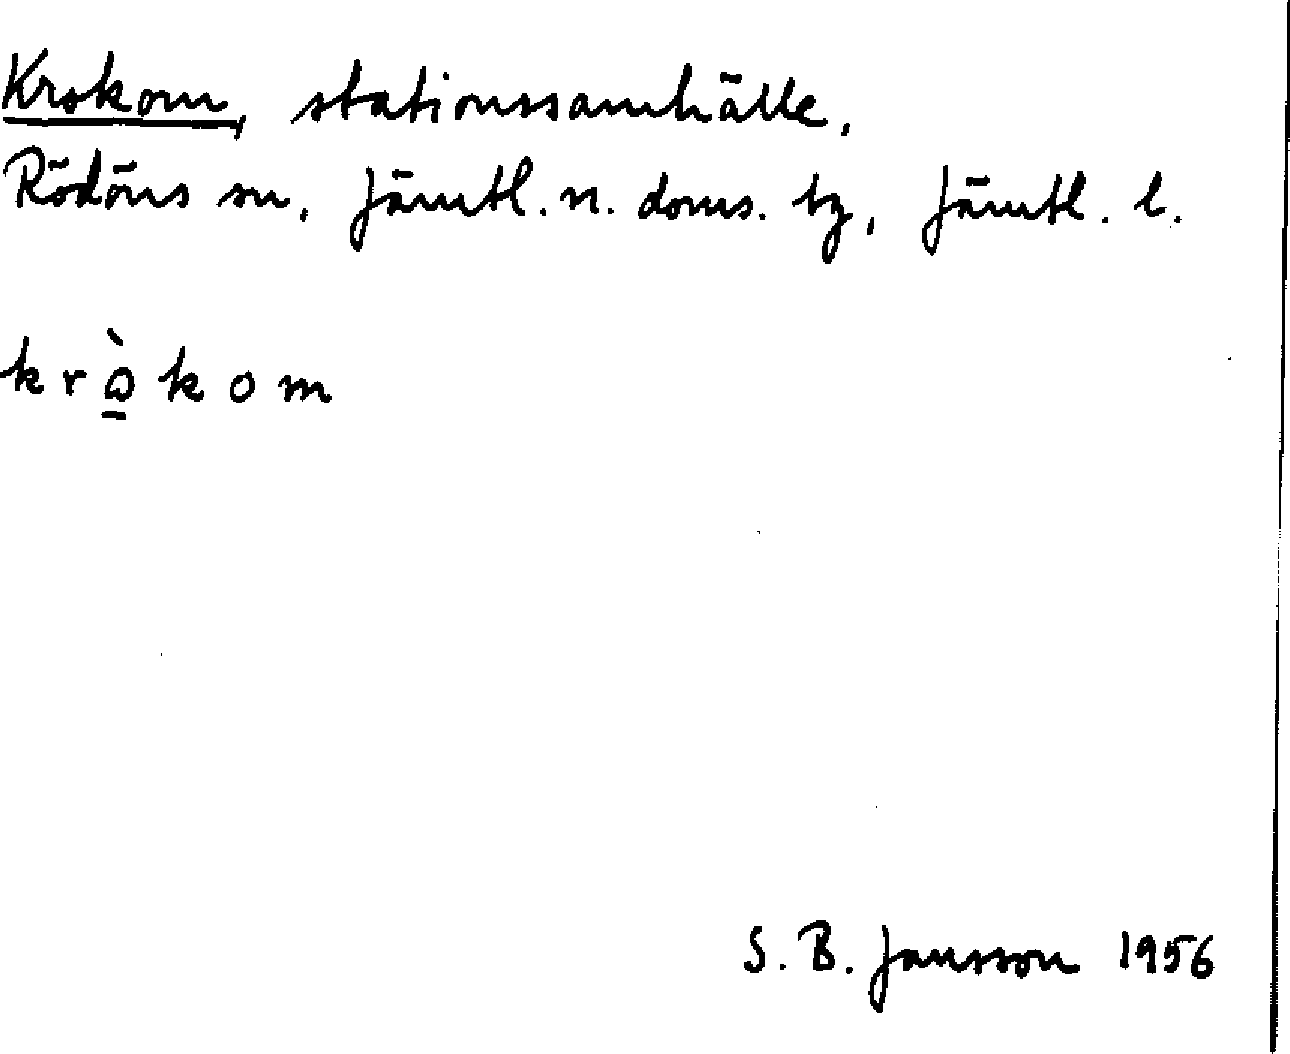 Krokom, stationssamhälle,
Rödöns sn, Jämtl. n. doms. tg, Jämtl. l.
krò̱kom
S. B. Jansson 1956